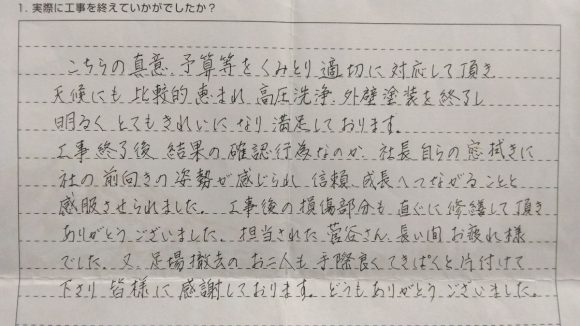 1. 実際に工事を終えていかがでしたか?
こちらの真意、予算等をくみとり適切に対応して頂き
天候にも比較的恵まれ高圧洗浄、外壁塗装を終了し
明るくとてもきれいになり満足しております。
工事終了後、結果の確認行為なのか、社長自らの窓拭きに
社の前向きの姿勢が感じられ信頼、成長へつながることと
感服させられました。工事後の損傷部分も直ぐに修繕して頂き
ありがとうございました。担当された菅谷さん、長い間お疲れ様
でした。又、足場撤去のお二人も手際良くてきぱくと片付けて
下さり皆様に感謝しております。どうもありがとうございました。